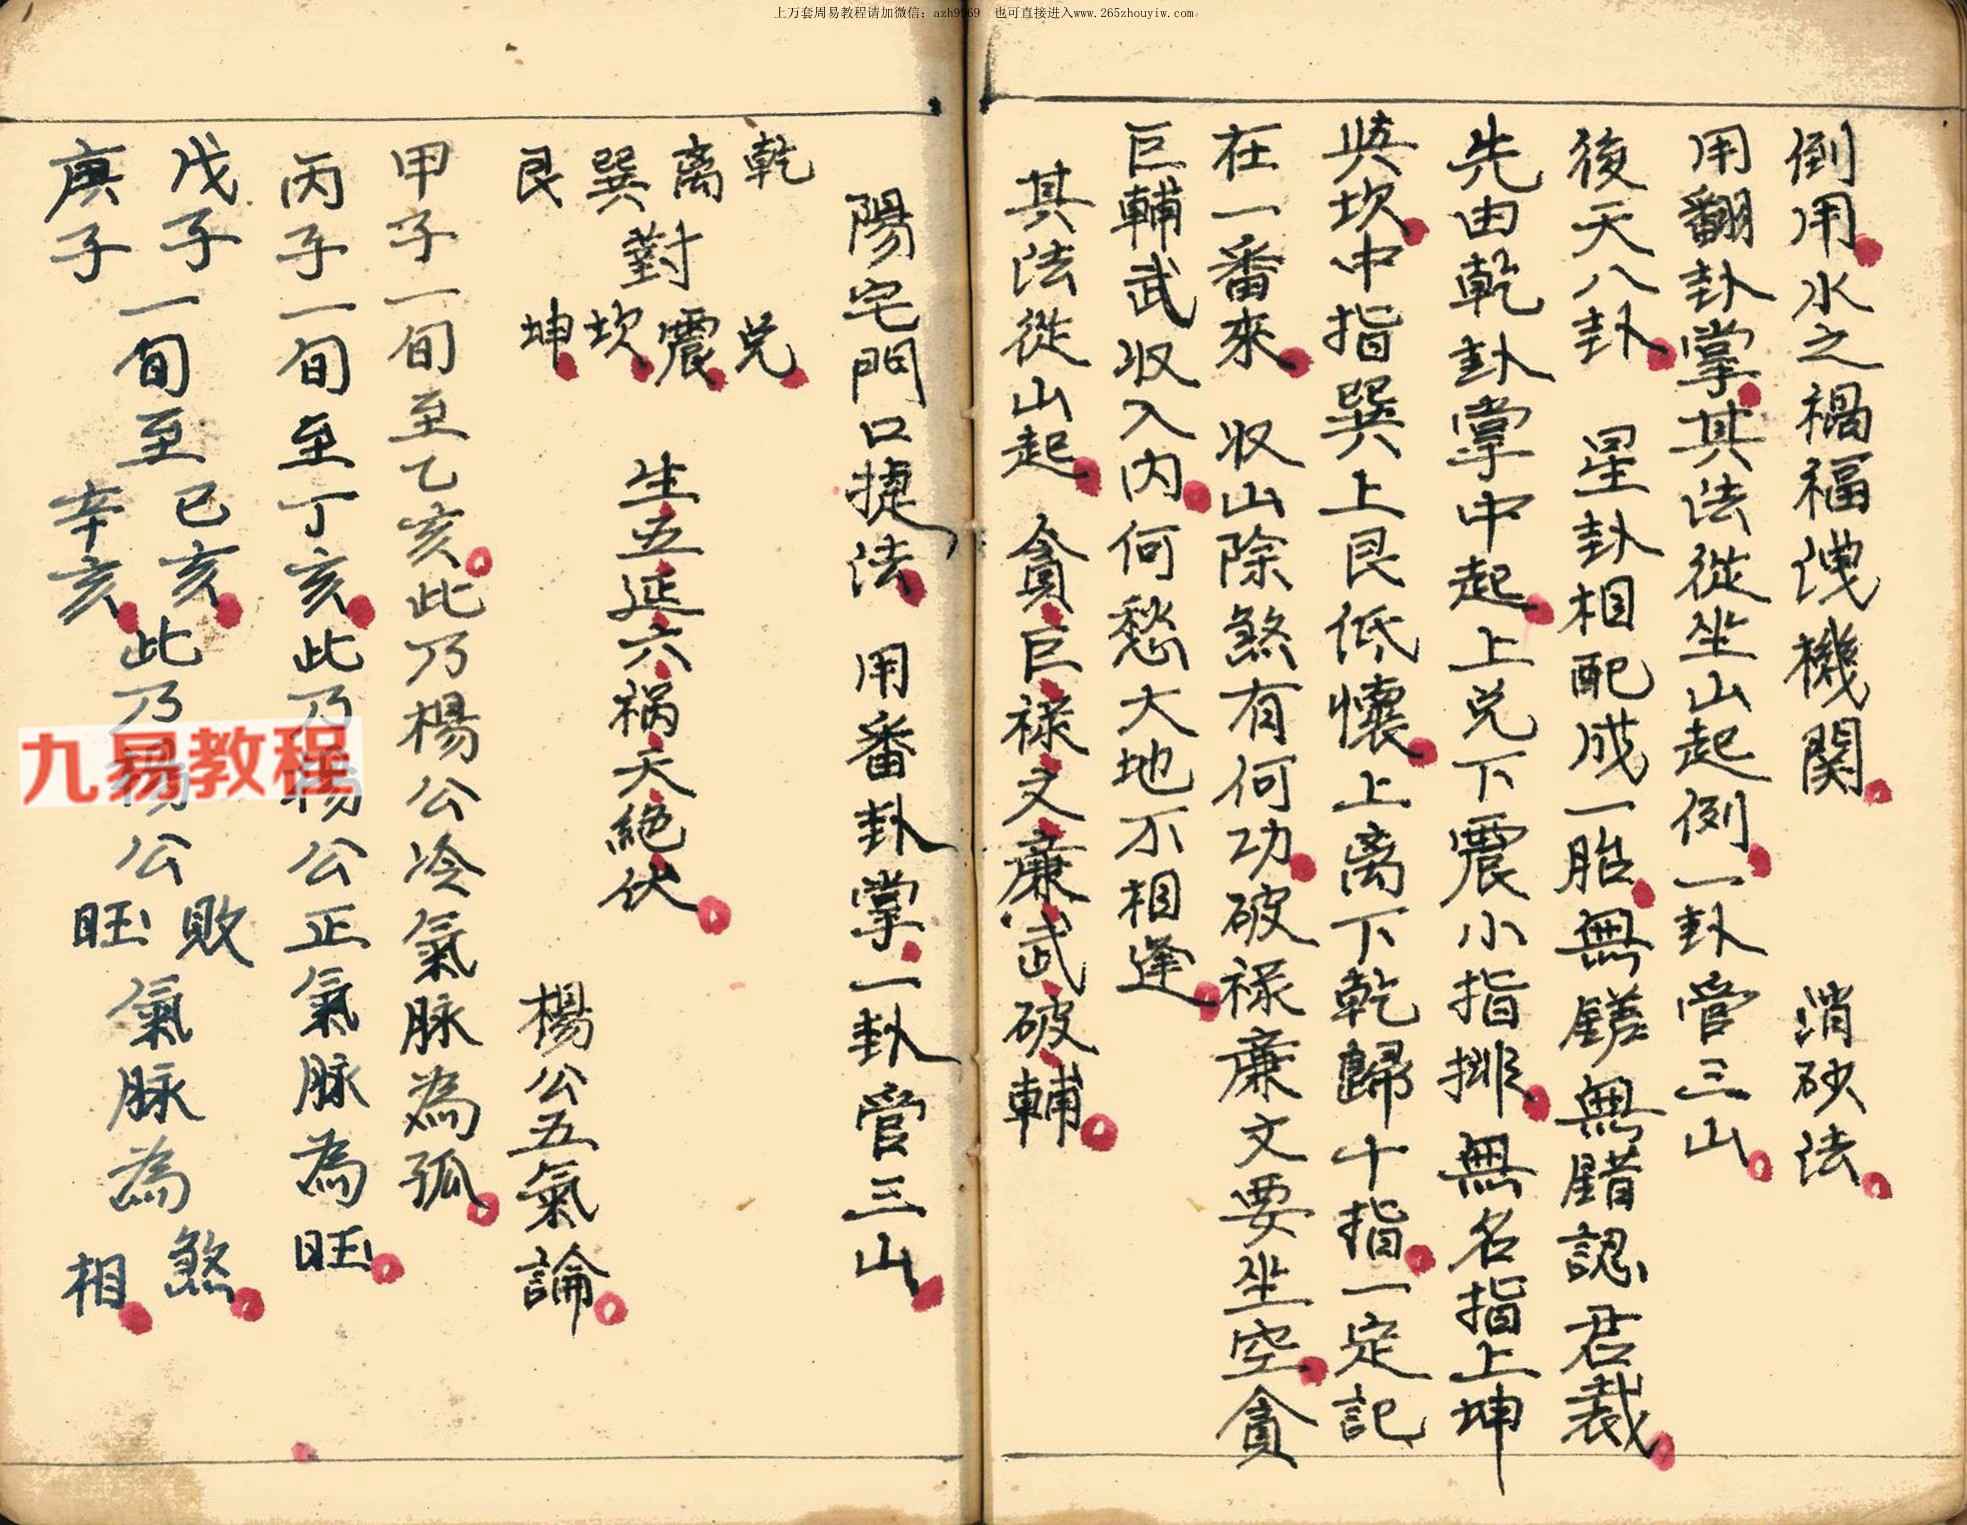 上万套周易教程请加微信: azh9969 也可直接进入www.265zhouyiw.com
倒用水之禍福洩機関 消砂法
用翻卦掌其法從坐山起例一卦管三山
後天八卦 星卦相配成一胎無鎈無錯認君裁
先由乾卦掌中起上兑下震小指排無名指上坤
與坎中指巽上艮低懷上离下乾歸十指一定記
在一番來 收山除煞有何功破禄廉文要坐空貪
巨輔武收入内何愁大地不相逢
其法從山起 貪巨禄文廉武破輔
陽宅門口捷法 用番卦掌一卦管三山
乾 兑
离 震
對
巽 坎
艮 坤
生五延六祸天絕伏
楊公五氣論
甲子一旬至乙亥此乃楊公冷氣脉為孤
丙子一旬至丁亥此乃楊公正氣脉為旺
戊子 己亥 敗 煞
一旬至 此乃楊公 氣脉為
庚子 辛亥 旺 相
九易教程